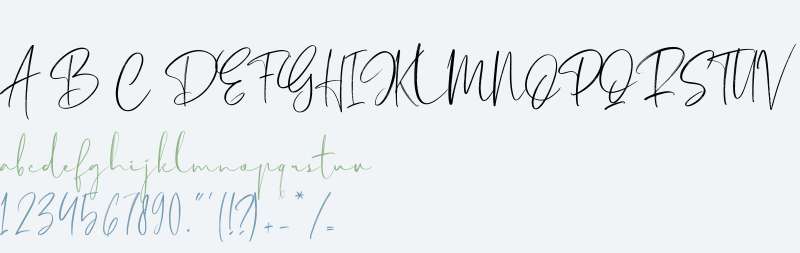 A B C D E F G H I J K L M N O P Q R S T U V
abcdefghijklmnopqrstuv
1234567890."'(!?)+-*/=